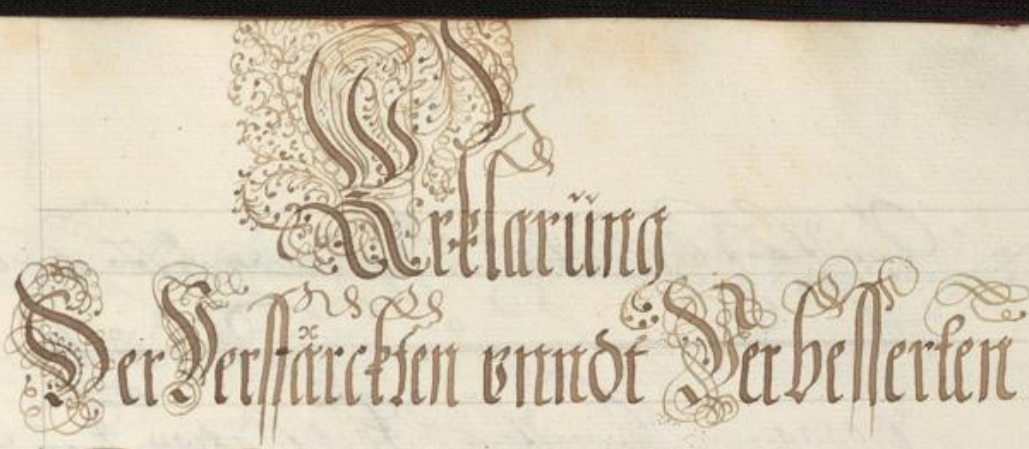 Erklarüng
Der Verstärckten vnndt Verbesserten